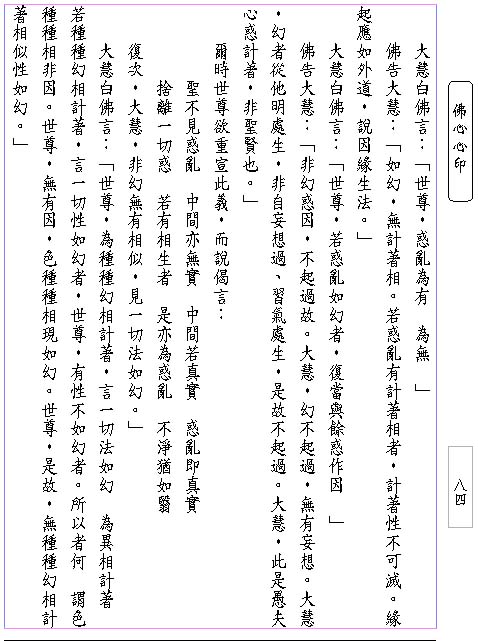 佛心心印
八四
大慧白佛言：「世尊，惑亂為有　為無　」
佛告大慧：「如幻，無計著相。若惑亂有計著相者，計著性不可滅。緣
起應如外道，說因緣生法。」
大慧白佛言：「世尊，若惑亂如幻者，復當與餘惑作因　」
佛告大慧：「非幻惑因，不起過故。大慧，幻不起過，無有妄想。大慧
，幻者從他明處生，非自妄想過、習氣處生，是故不起過。大慧，此是愚夫
心惑計著，非聖賢也。」
爾時世尊欲重宣此義，而說偈言：
聖不見惑亂　中間亦無實　中間若真實　惑亂即真實
捨離一切惑　若有相生者　是亦為惑亂　不淨猶如翳
復次，大慧，非幻無有相似，見一切法如幻。」
大慧白佛言：「世尊，為種種幻相計著，言一切法如幻　為異相計著
若種種幻相計著，言一切性如幻者，世尊，有性不如幻者。所以者何　謂色
種種相非因。世尊，無有因，色種種相現如幻。世尊，是故，無種種幻相計
著相似性如幻。」